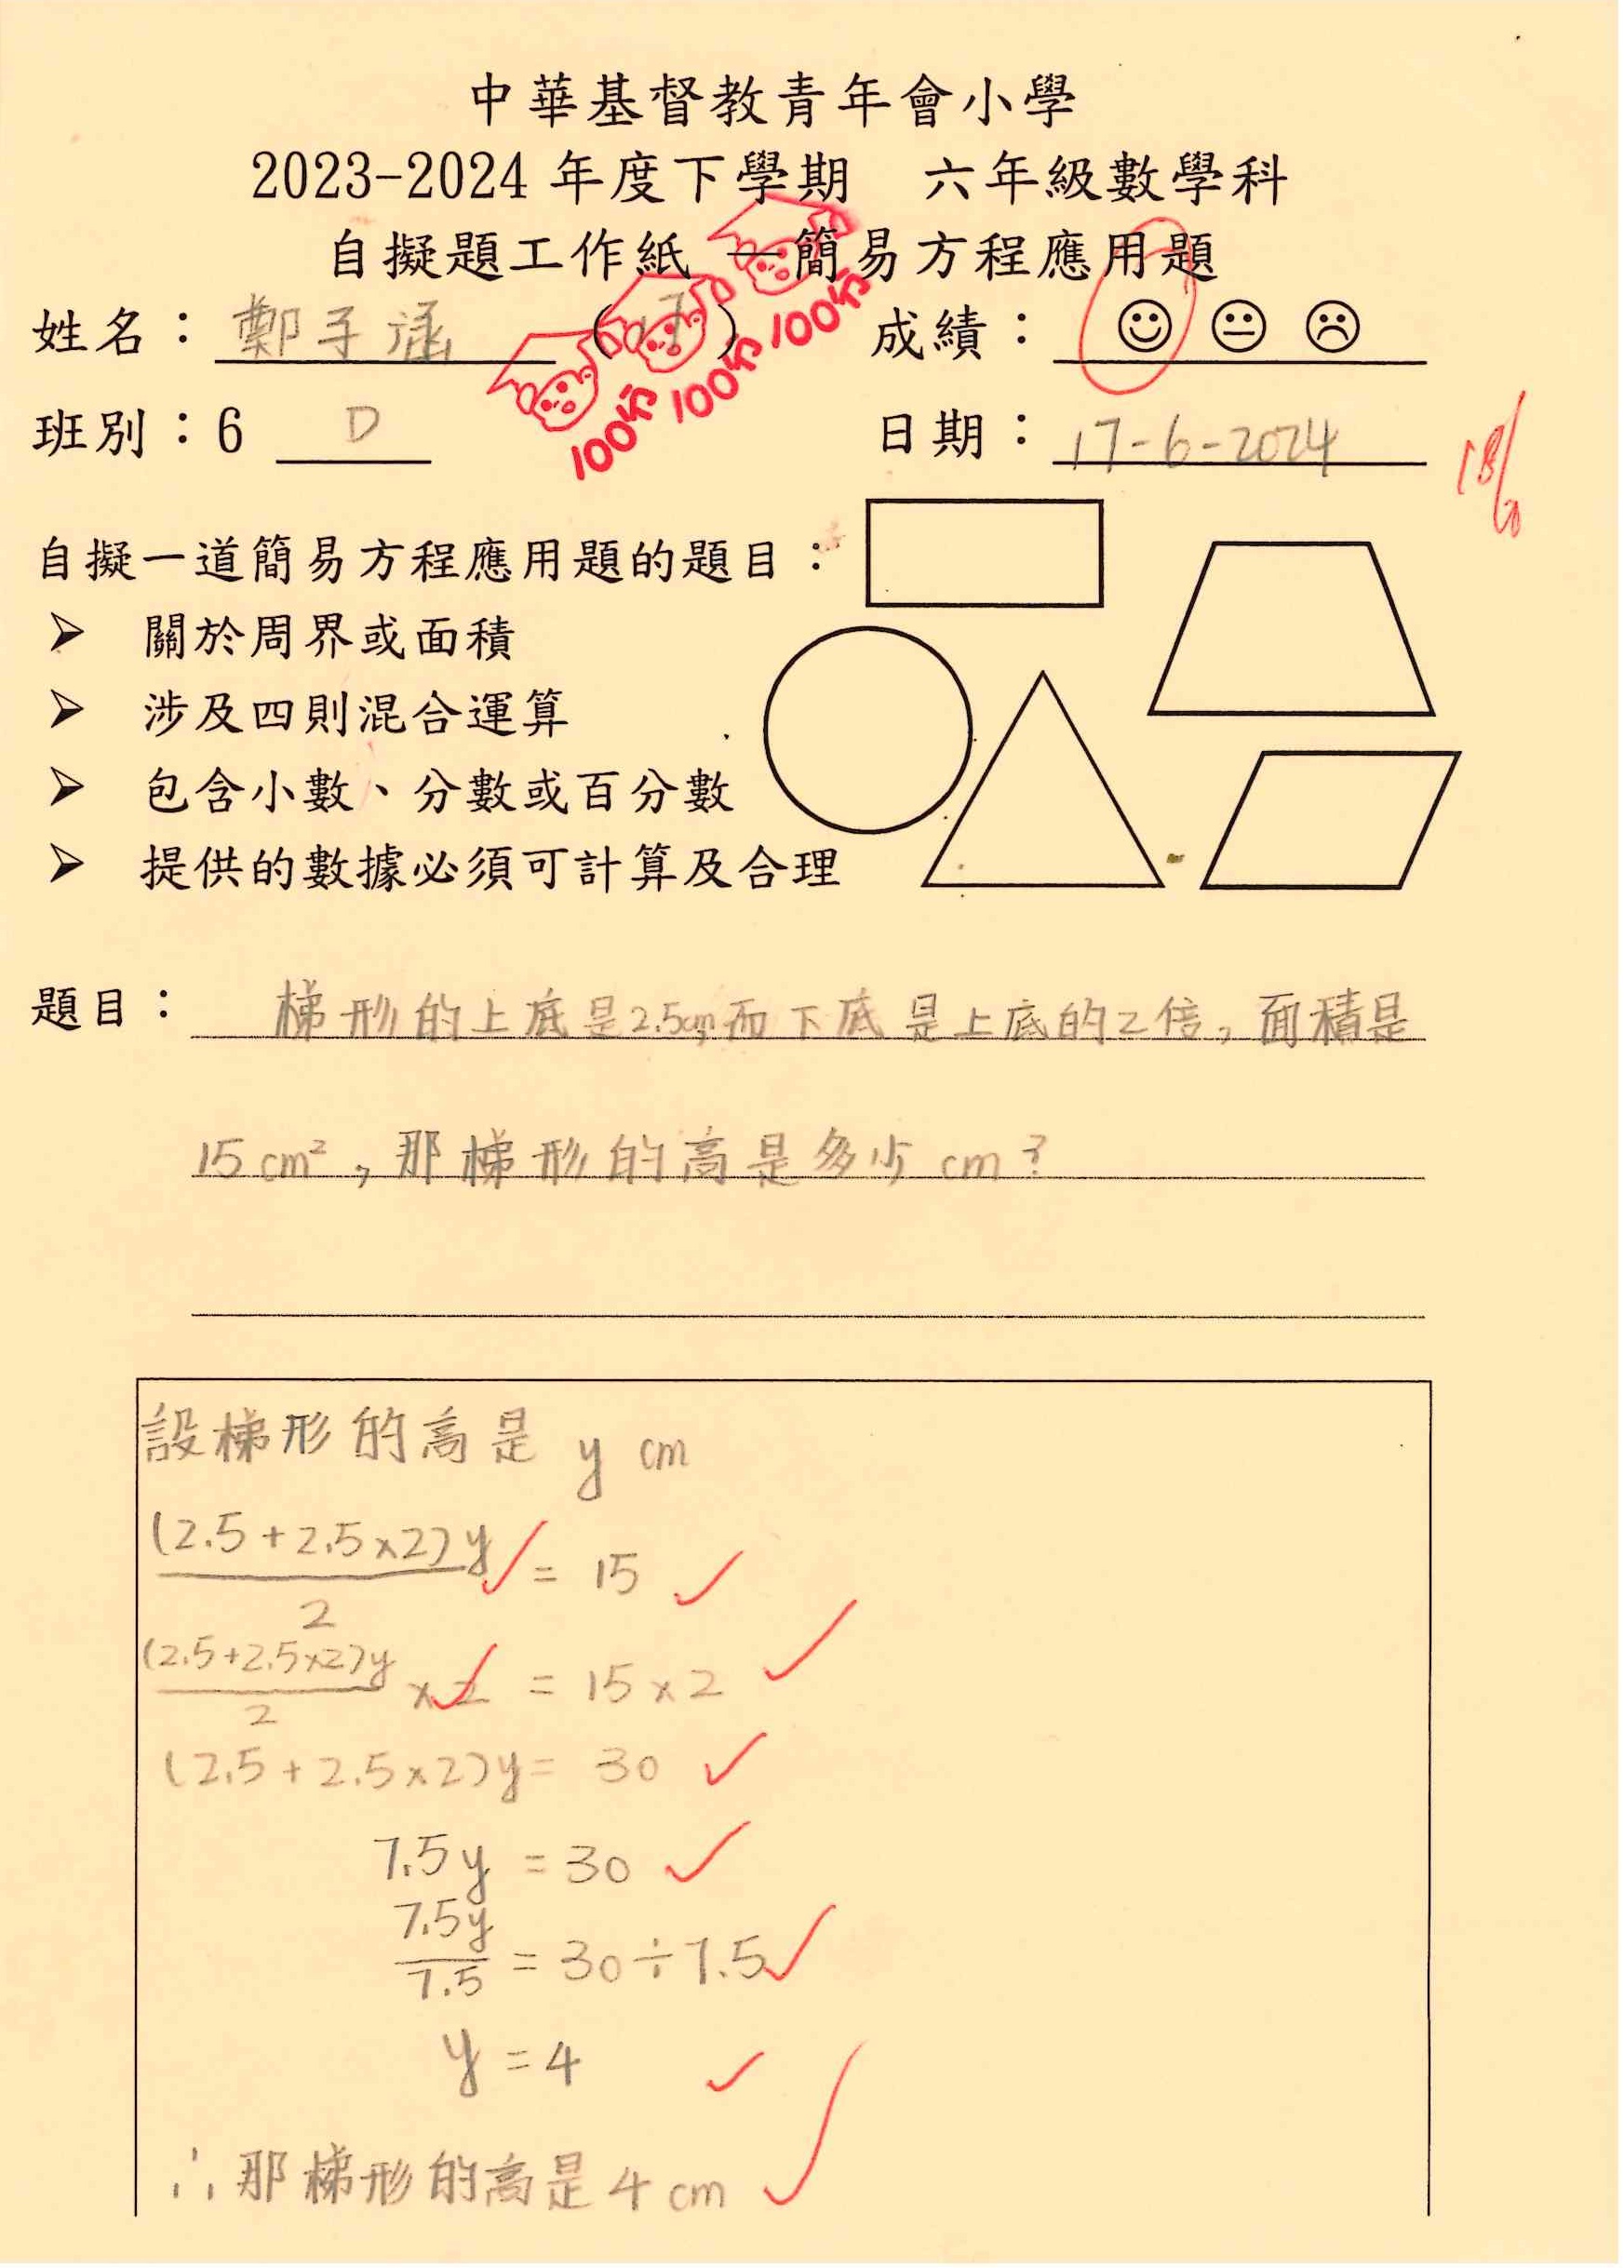 中華基督教青年會小學
2023-2024 年度下學期 六年級數學科
自擬題工作紙 — 簡易方程應用題
姓名：鄭子涵 ( ) 成績：
100分 100分 100分
班別：6 D 日期：17-6-2024
18/6
自擬一道簡易方程應用題的題目：
➢ 關於周界或面積
➢ 涉及四則混合運算
➢ 包含小數、分數或百分數
➢ 提供的數據必須可計算及合理
題目： 梯形的上底是2.5cm,而下底是上底的2倍,面積是
15cm²,那梯形的高是多少cm?
設梯形的高是 y cm
(2.5+2.5×2)y/2 = 15
(2.5+2.5×2)y/2 ×2 = 15×2
(2.5+2.5×2)y= 30
7.5y = 30
7.5y/7.5 = 30÷7.5
y = 4
∴那梯形的高是4cm